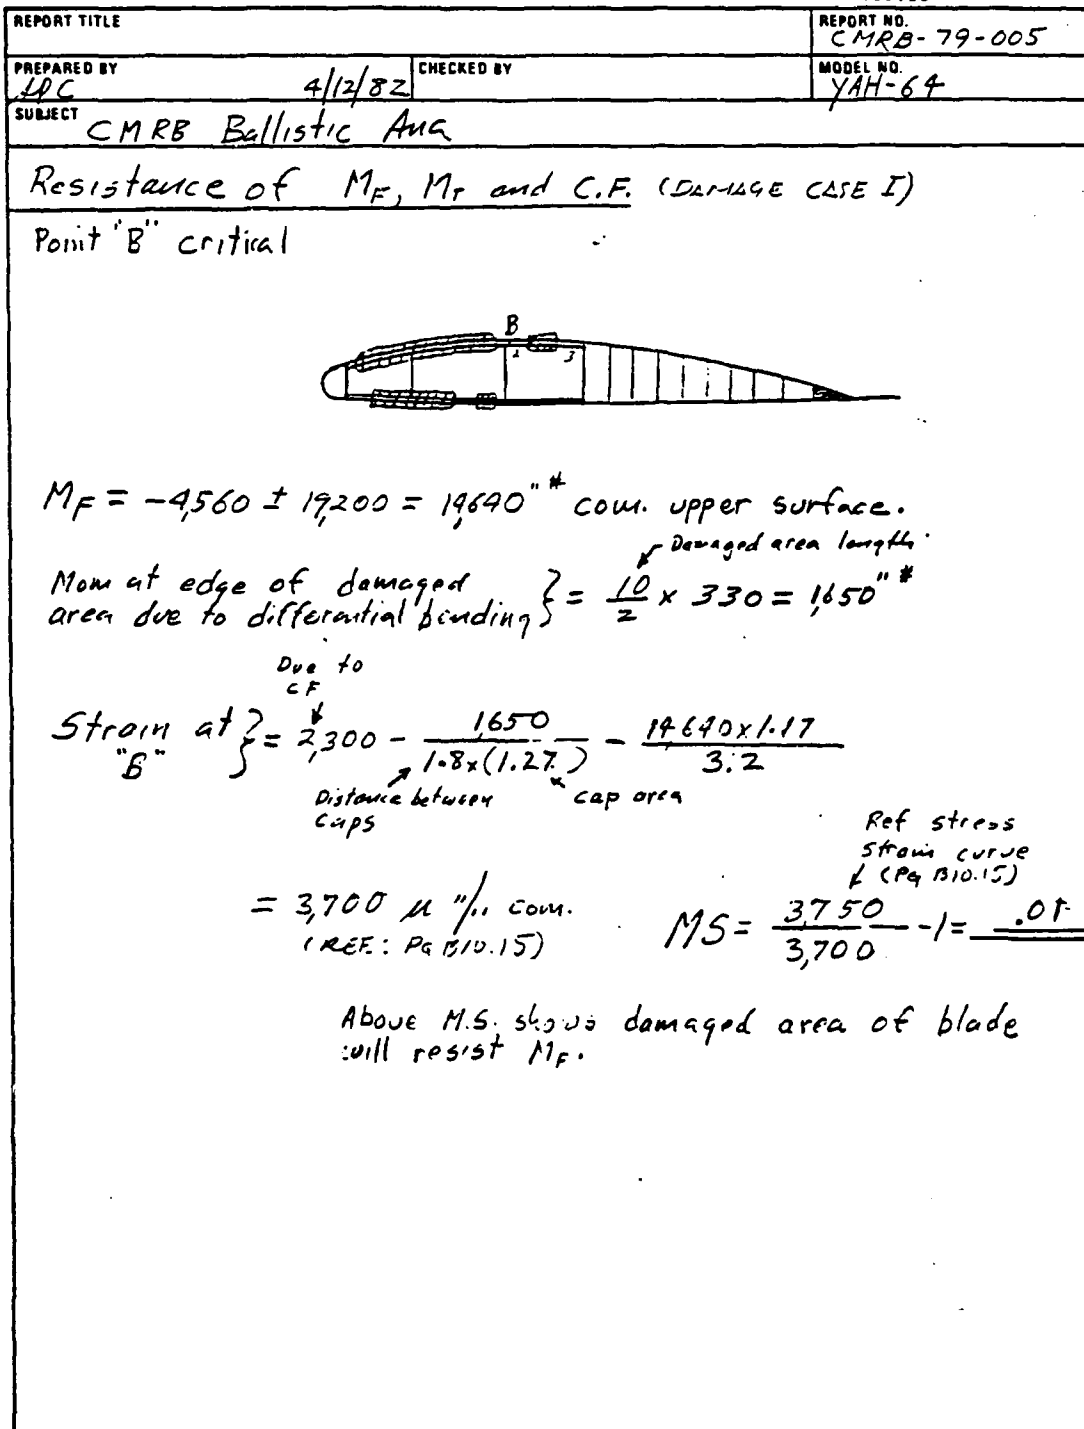 REPORT TITLE
REPORT NO.
CMRB-79-005
PREPARED BY
4/12/82
CHECKED BY
MODEL NO.
YAH-64
SUBJECT CMRB Ballistic Ana
Resistance of MF, MT and C.F. (DAMAGE CASE I)
Point "B" critical
B
2 3
MF = -4,560 ± 19,200 = 14,640"# com. upper surface.
Damaged area length
Mom at edge of damaged
area due to differential bending } = 10/2 x 330 = 1,650"#
Due to
CF
Strain at "B" } = 2,300 - 1650/1.8x(1.27) - 14640x1.17/3.2
Distance between
Caps
cap area
Ref stress
strain curve
(Pg B10.15)
= 3,700 μ "/" com.
(REF: Pg B10.15)
MS = 3750/3,700 -1 = .01+
Above M.S. shows damaged area of blade
will resist MF.